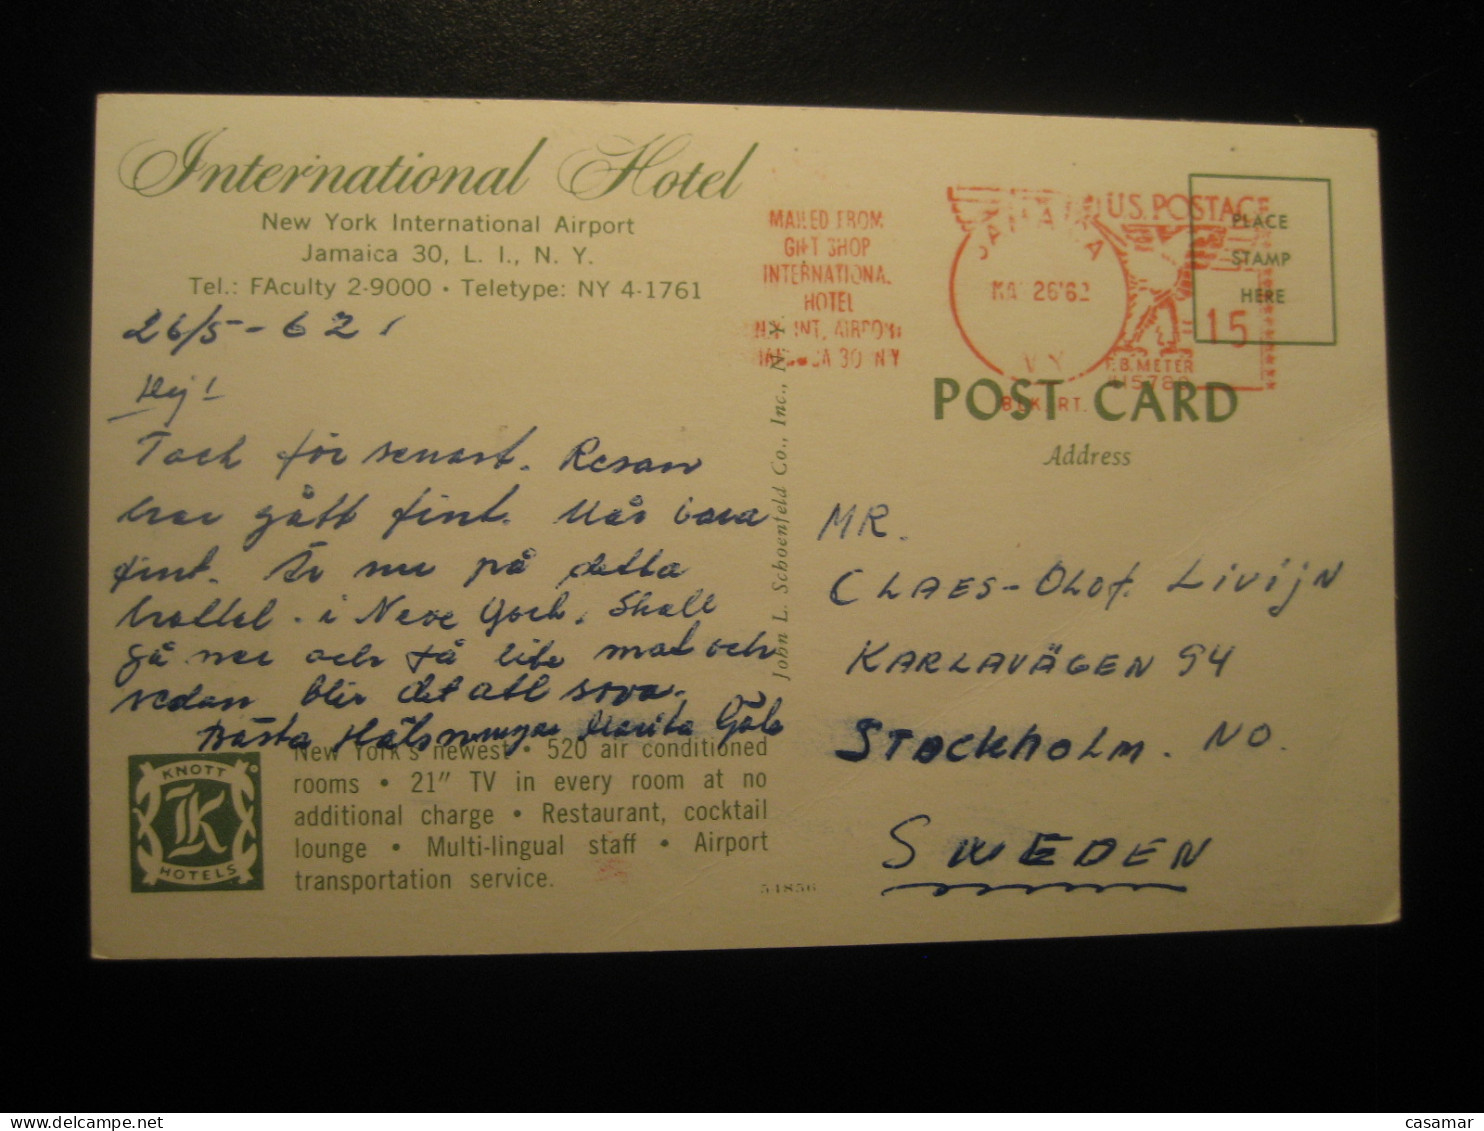 International Hotel
New York International Airport
Jamaica 30, L. I., N. Y.
Tel.: FAculty 2-9000 · Teletype: NY 4-1761
26/5-62
Hej!
Tack för senast. Resan
har gått fint. Mår bara
fint. Är nu på detta
hottel. i New York. Skall
gå ner och få lite mat och
sedan blir det att sova.
Bästa Hälsningar Marita
New York's newest · 520 air conditioned
rooms · 21" TV in every room at no
additional charge · Restaurant, cocktail
lounge · Multi-lingual staff · Airport
transportation service.
KNOTT
K
HOTELS
54856
John L. Schoenfeld Co., Inc., N. Y.
MAILED FROM
GIFT SHOP
INTERNATIONAL
HOTEL
N.Y. INT. AIRPORT
JAMAICA 30 NY
JAMAICA
MAY 26'62
N.Y.
U.S. POSTAGE
15
P.B. METER
PLACE
STAMP
HERE
POST CARD
Address
MR.
CLAES-OLOF LIVIJN
KARLAVÄGEN 94
STOCKHOLM. NO.
SWEDEN
casamar